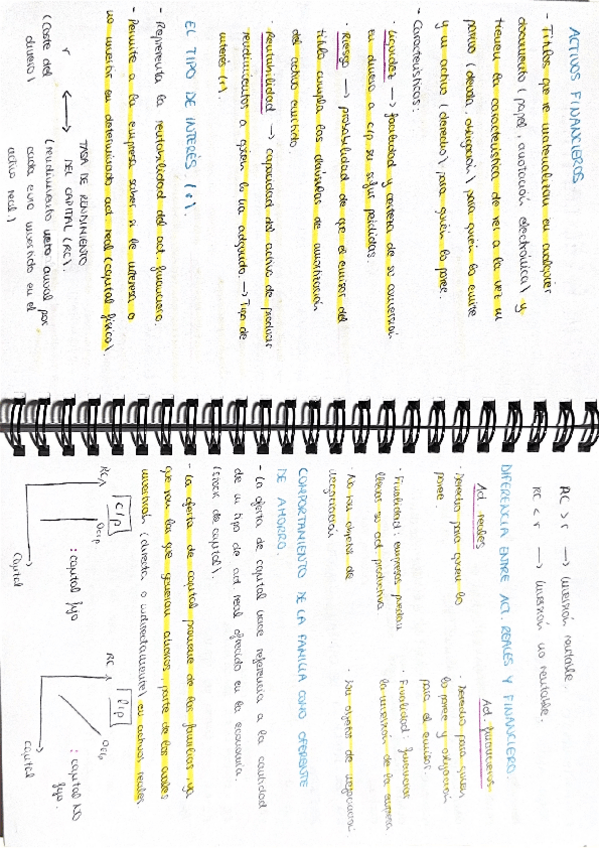 ACTIVOS FINANCIEROS
- Títulos que se materializan en cualquier
documento (papel, anotación electrónica) y
tienen la característica de ser a la vez un
pasivo (deuda, obligación) para quien lo emite
y un activo (derecho) para quien lo posee.
- Características:
· Liquidez → facilidad y certeza de su conversión
en dinero a c/p sin sufrir pérdidas.
· Riesgo → probabilidad de que el emisor del
título cumpla las cláusulas de amortización
del activo emitido.
· Rentabilidad → capacidad del activo de producir
rendimientos a quien lo ha adquirido → Tipo de
interés (r).
EL TIPO DE INTERÉS (r).
- Representa la rentabilidad del act. financiero.
- Permite a la empresa saber si le interesa o
no invertir en determinado act real (capital físico).
r ⟷ TASA DE RENDIMIENTO
DEL CAPITAL (RC).
(coste del
dinero)
(rendimiento neto anual por
cada euro invertido en el
activo real)
RC > r → inversión rentable.
RC < r → inversión no rentable.
DIFERENCIA ENTRE ACT. REALES Y FINANCIERO.
Act reales
· Derecho para quien lo
posee.
· Finalidad: empresas puedan
llevar su act productiva
· No son objetos de
negociación
Act. financieros.
· Derecho para quien
lo posee y obligación
para el emisor.
· Finalidad: financiar
la inversión de la empresa
· Son objetos de negociación.
COMPORTAMIENTO DE LA FAMILIA COMO OFERENTE
DE AHORRO.
- La oferta de capital hace referencia a la cantidad
de un tipo de act real ofrecido en la economía.
(stock de capital).
- La oferta de capital proviene de las familias, ya
que son las que generan ahorros, parte de los cuales
invertirán (directa o indirectamente) en activos reales
c/p
RC
Ocp.
: capital fijo
Capital
l/p
RC
Ocp
: capital NO
fijo.
Capital